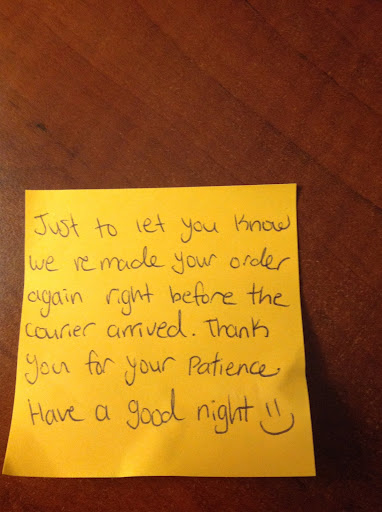 Just to let you know
we remade your order
again right before the
courier arrived. Thank
you for your Patience
Have a good night